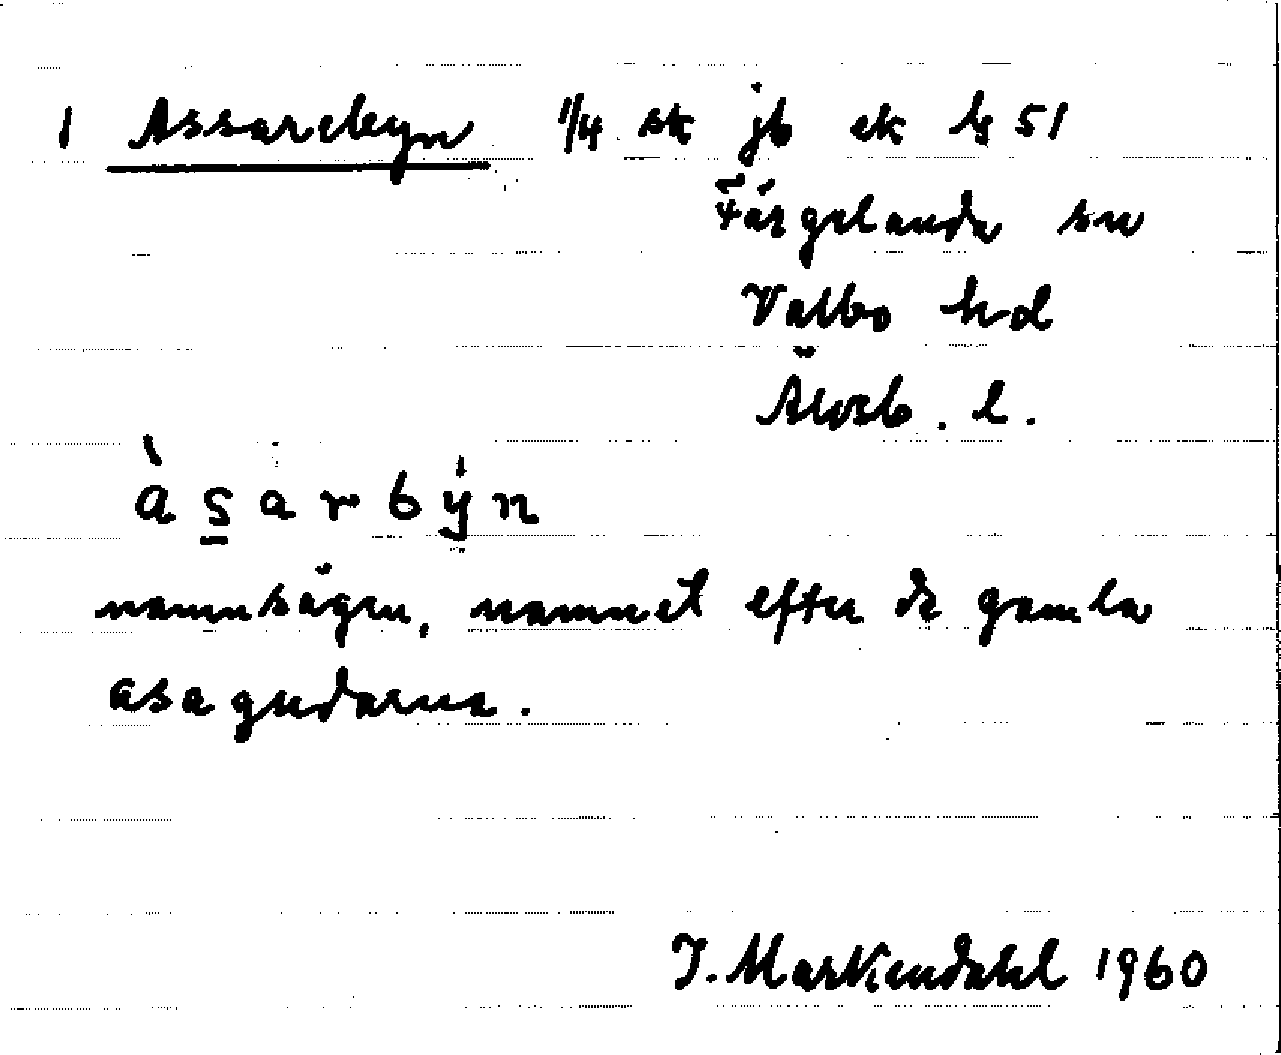 1 Assarebyn 1/4 sk jb ek bl 51
Färgelanda sn
Valbo hd
Älvsb. l.
àsarby̍n
namnsägen, namnet efter de gamla
asagudarna.
I. Markendahl 1960